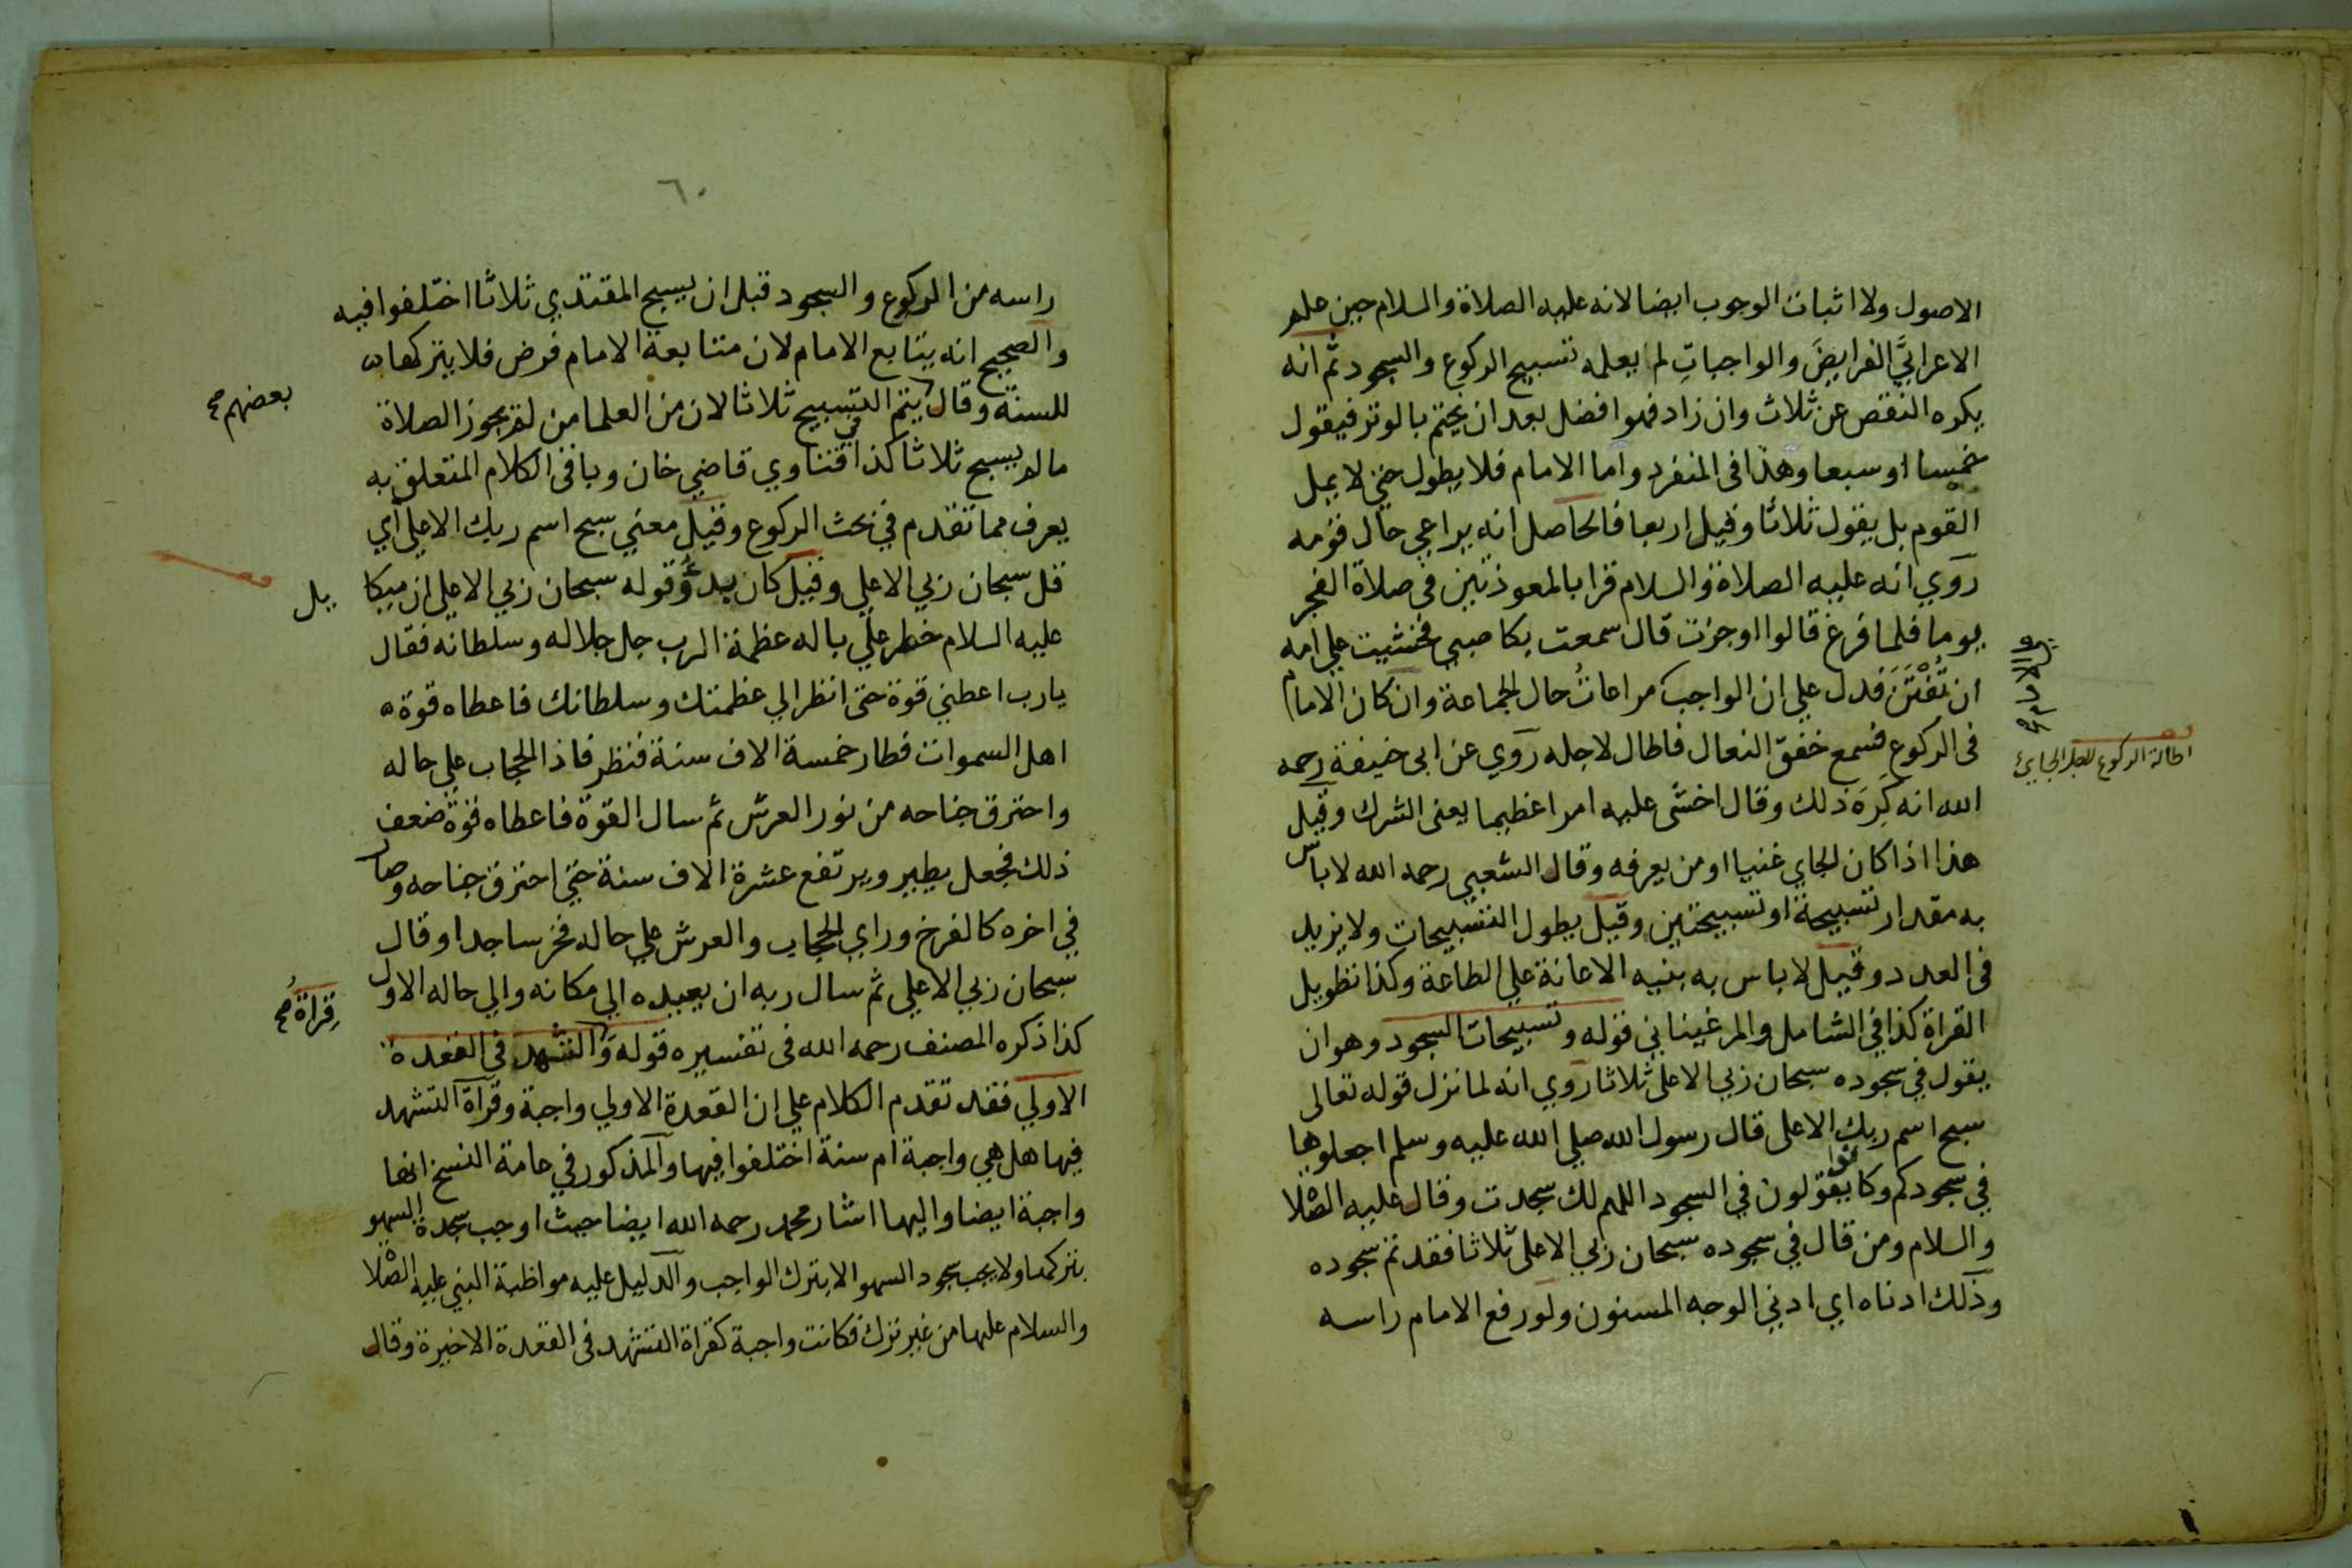 الاصول ولا اثبات الوجوب ايضا لانه عليه الصلاة والسلام حين علم
الاعرابيَّ الفرايضَ والواجباتِ لم يعلمه تسبيح الركوع والسجود ثم انه
يكره النقص عن ثلاث وان زاد فهو افضل بعد ان يختم بالوتر فيقول
خمسا او سبعا وهذا فى المنفرد واما الامام فلا يطول حتى لا يمل
القوم بل يقول ثلاثا وقيل اربعا فالحاصل انه يراعي حال قومه
روي انه عليه الصلاة والسلام قرا بالمعوذتين فى صلاة الفجر
يوما فلما فرغ قالوا اوجزت قال سمعت بكا صبي فخشيت علي امه
ان تُفْتَنَ فدل علي ان الواجب مراعاتُ حال الجماعة وان كان الامام
فى الركوع فسمع خفق النعال فاطال لاجله روي عن ابى حنيفة رحمه
اطالة الركوع للجاي
الله انه كَرِهَ ذلك وقال اخشى عليه امرا عظيما يعنى الشرك وقيل
هذا اذا كان الجاي غنيا او من يعرفه وقال الشعبي رحمه الله لا باس
به مقدار تسبيحة او تسبيحتين وقيل يطول التسبيحات ولا يزيد
فى العدد وقيل لا باس به بنيه الاعانة علي الطاعة وكذا تطويل
القراة كذا في الشامل والمرغيناني قوله وتسبيحات السجود وهو ان
يقول في سجوده سبحان ربي الاعلى ثلاثا روي انه لما نزل قوله تعالى
سبح اسم ربك الاعلى قال رسول الله صلي الله عليه وسلم اجعلوها
في سجودكم وكانوا يقولون في السجود اللهم لك سجدت وقال عليه الصلا
والسلام ومن قال في سجوده سبحان ربي الاعلى ثلاثا فقد تم سجوده
وذلك ادناه اي ادني الوجه المسنون ولو رفع الامام راسه
٦٠
راسه من الركوع والسجود قبل ان يسبح المقتدي ثلاثا اختلفوا فيه
والصحيح انه يتابع الامام لان متابعة الامام فرض فلا يتركها
للسنة وقال بعضهم صح يتم التسبيح ثلاثا لان من العلما من لم يجوز الصلاة
ما لم يسبح ثلاثا كذا في فتاوي قاضي خان وباقى الكلام المتعلق به
يعرف مما تقدم في بحث الركوع وقيل معني سبح اسم ربك الاعلى اي
قل سبحان ربي الاعلي وقيل كان بدؤُ قوله سبحان ربي الاعلي ان ميكايل
عليه السلام خطر علي باله عظمة الرب جل جلاله وسلطانه فقال
يارب اعطني قوة حتى انظر الي عظمتك وسلطانك فاعطاه قوة
اهل السموات فطار خمسة الاف سنة فنظر فاذا الحجاب علي حاله
واحترق جناحه من نور العرش ثم سال القوة فاعطاه قوة ضعف
ذلك فجعل يطير ويرتفع عشرة الاف سنة حتى احترق جناحه وصار
في اخره كالفرخ وراي الحجاب والعرش علي حاله فخر ساجدا وقال
سبحان ربي الاعلي ثم سال ربه ان يعيده الي مكانه والي حاله الاول
كذا ذكره المصنف رحمه الله فى تفسيره قوله و قراةُ صح التشهد فى القعدة
الاولي فقد تقدم الكلام علي ان القعدة الاولي واجبة وقراة التشهد
فيها هل هي واجبة ام سنة اختلفوا فيها والمذكور في عامة النسخ انها
واجبة ايضا واليها اشار محمد رحمه الله ايضا حيث اوجب سجدة السهو
بتركها ولا يجب سجود السهو الا بترك الواجب والدليل عليه مواظبة النبي عليه الصلا
والسلام عليها من غير ترك فكانت واجبة كقراة التشهد فى القعدة الاخيرة وقال